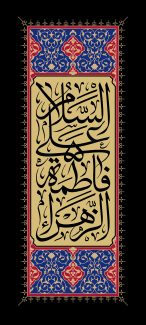 السلام
على
فاطمة
الزهراء